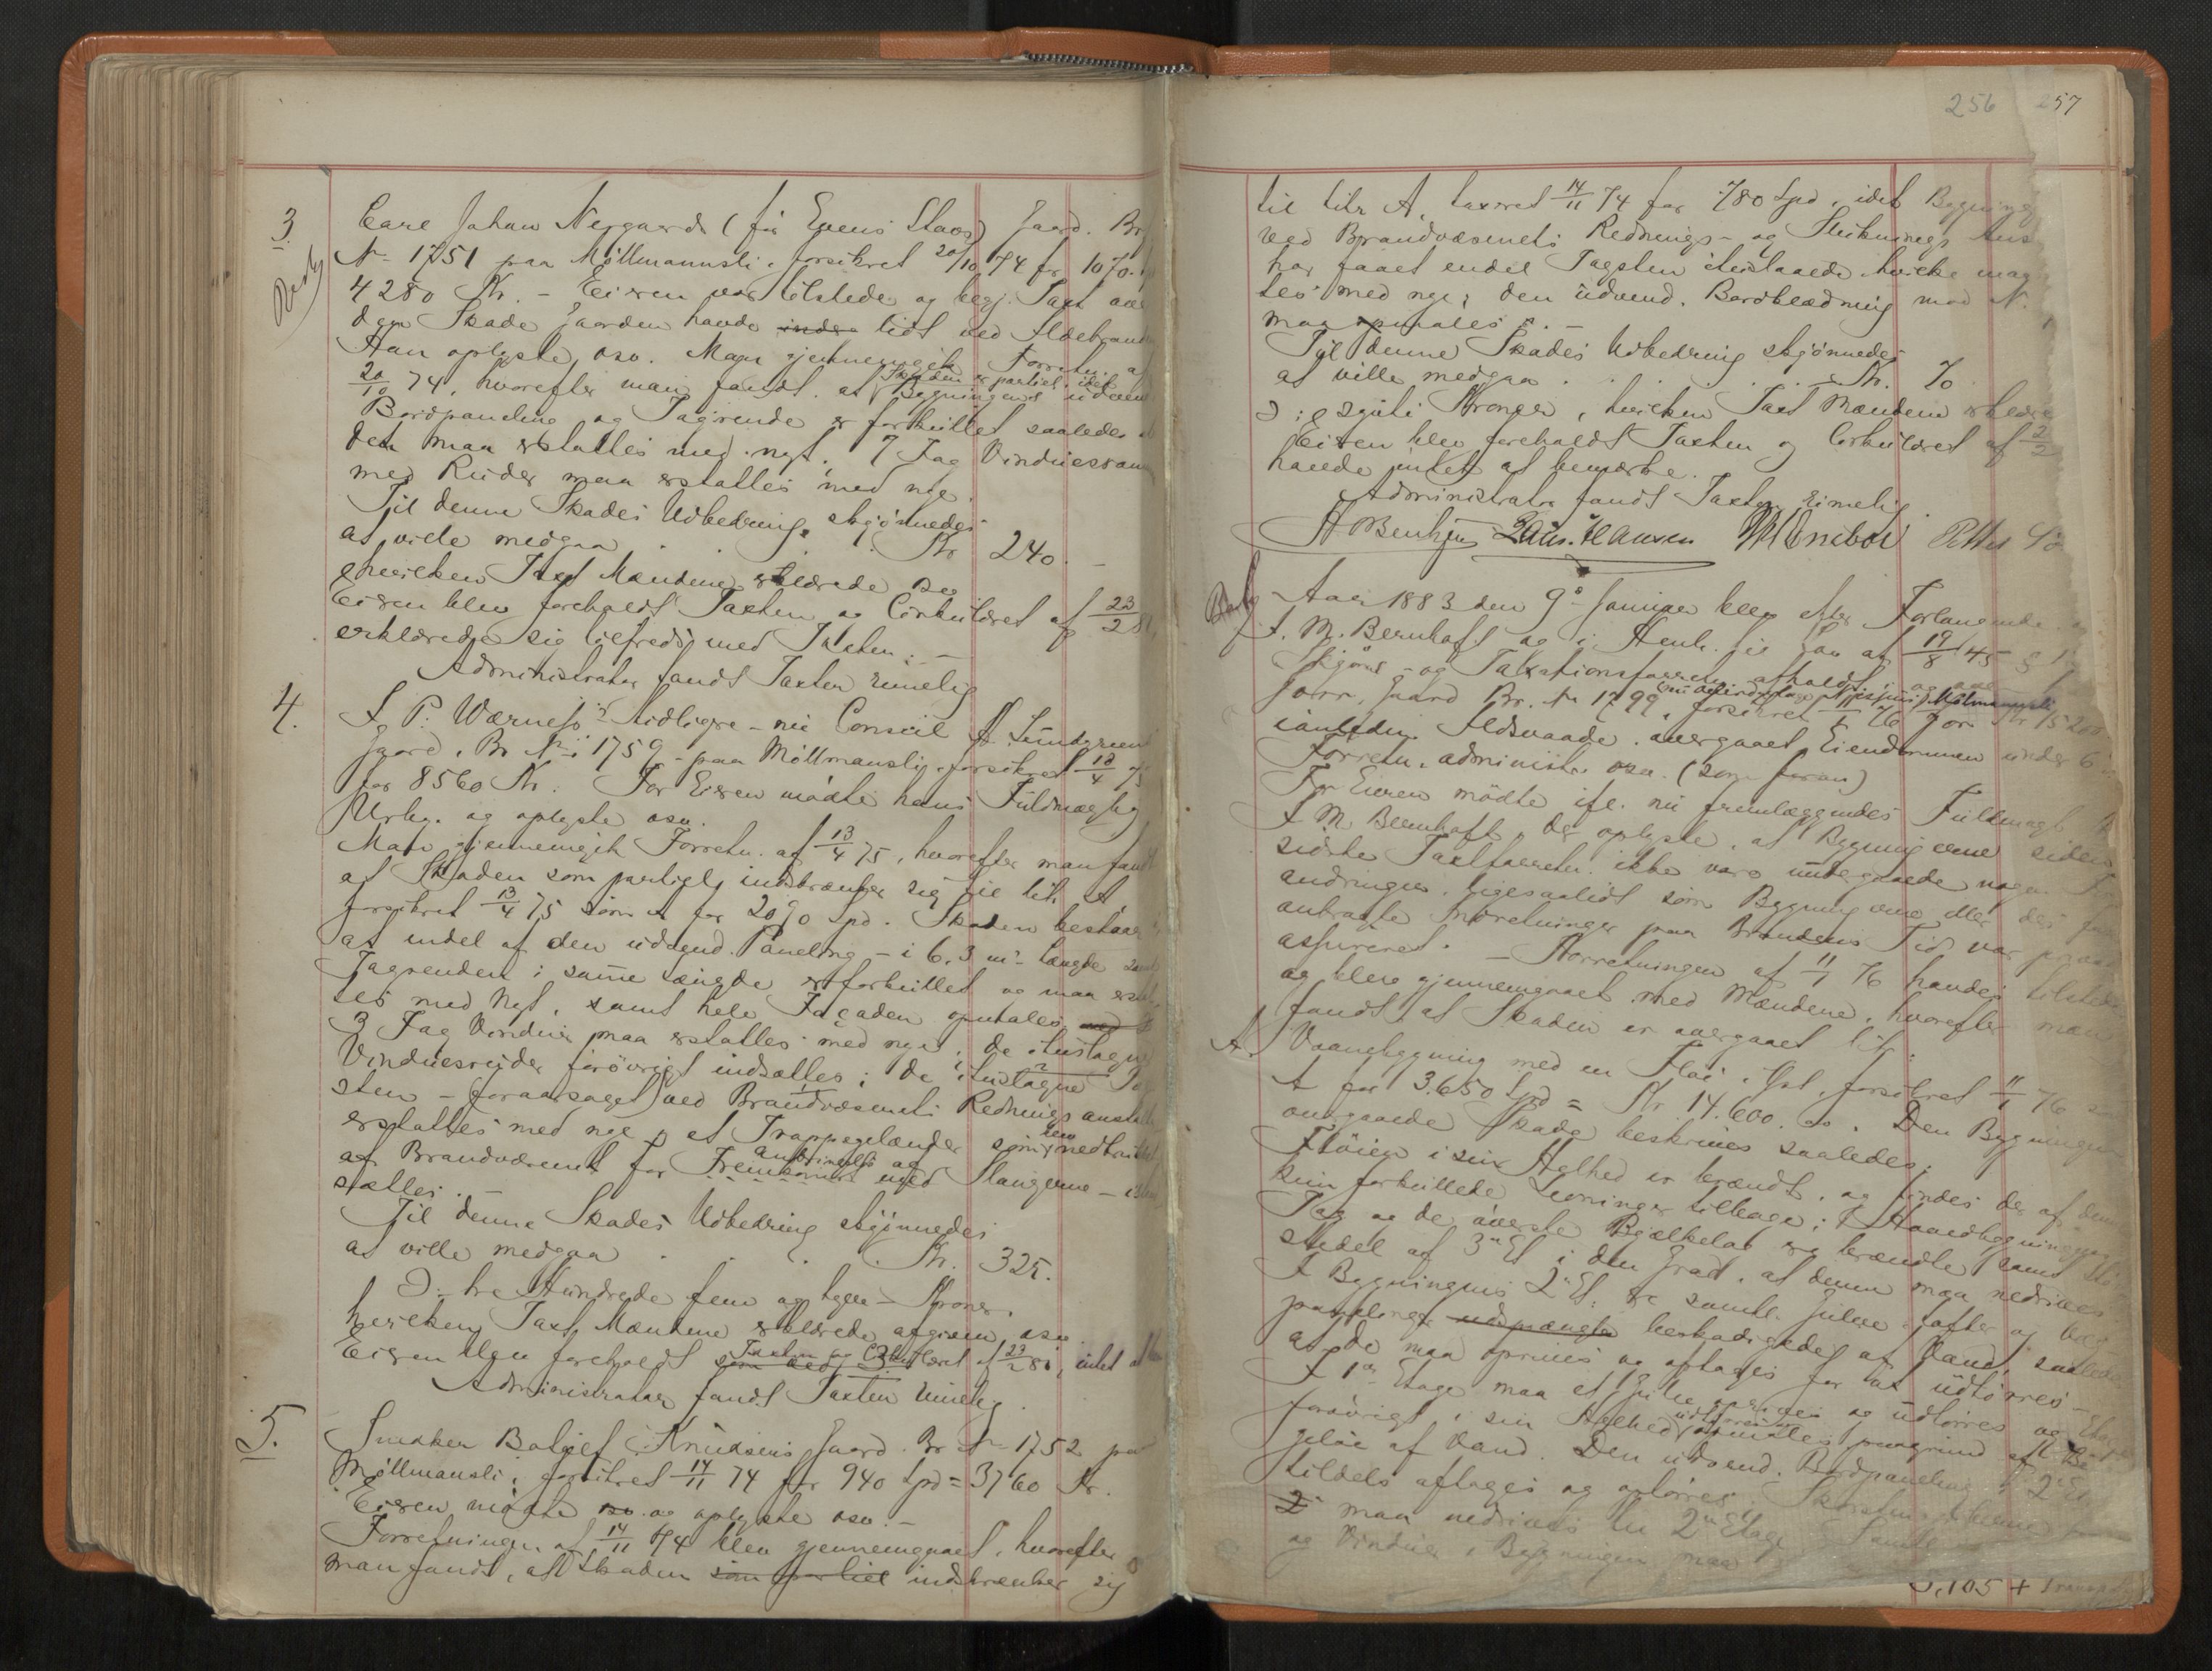 3.
Carl Johan Nergaards (før Evens Staas) Gaard. Br
N° 1751 paa Möllmannsli. forsikret 20/10 74 for 1070.
4280 Kr. – Eieren var tilstede og begj. Taxt over
den Skade Gaarden havde lidt ved Ildebranden
Han oplyste, osv. Man gjennemgik Forretn. af
20/10 74, hvorefter man fandt, at Skaden er partiel, idet Bygningens udvend
Bordpaneling og Tagrende er forkullet saaledes at
den maa erstattes med nyt. 7 Fag Vinduesram
med Ruder maa erstattes med nye.
Til denne Skades Udbedring skjönnedes
at ville medgaa . . . Kr 240. –
hvilken Taxt Mændene erklærede osv
Eieren blev foreholdt Taxten og Cirkulæret af 23/2 81,
erklærede sig tilfreds med Taxten. –
Administrator fandt Taxten rimelig
4.
L. P. Wærness's tidligere – nu Consul A. Lundgreens
Gaard, Br N° 1759 – paa Möllmansli. forsikret 13/4 75
for 8560 Kr. For Eieren mødte hans Fuldmægtig
Urby. og oplyste osv.
Man gjennemgik Forretn. af 13/4 75, hvorefter man fandt
at Skaden som partiel, indskrænker sig til litr. A,
forsikret 13/4 75 som A for 2090 Spd. Skaden bestaar
at endel af den udvend. Paneling – i 6,3 m længde samt
Tagrenden i samme længde er forkullet og maa erstat
tes med Nyt, samt hele Façaden opmales
3 Fag Vinduer maa erstattes med nye, de itustagne
Vinduesruder forövrigt indsættes; de itustagne Tag
sten – foraarsaget ved Brandvæsenets Rednings anstalter
erstattes med nye; et Trappegelænder som blev nedtrukket
af Brandvæsenet for anbringelse af Fremkomst med Slangerne –
sættes. –
Til denne Skades Udbedring skjönnedes
at ville medgaa . . . Kr. 325.
ɔ: tre Hundrede fem og tyve – Kroner.
hvilken Taxt Mændene erklærede afgiven osv.
Eieren blev foreholdt Taxten og Cirkulæret af 23/2 81, intet at
Administrator fandt Taxten rimelig.
5.
Snedker Botolf Knudsens Gaard. Br N° 1752 paa
Möllmansli; forsikret 14/11 74 for 940 Spd = 3760 Kr.
Eieren mødte osv. og oplyste osv. –
Forretningen af 14/11 74 blev gjennemgaaet, hvorefter
man fandt, at Skaden som partiel indskrænker sig
256 257
til litr A, taxeret 14/11 74 for 780 Spd, idet Bygningen
ved Brandvæsenets Rednings- og Sluknings Ans
har faaet endel Tagsten itustaaede hvilke maa
tes med nye; den udvend. Bordklædning mod N.
maa opmales. –
Til denne Skades Udbedring skjönnedes
at ville medgaa . . . . . Kr. 70
ɔ: sytti Kroner, hvilken Taxt Mændene erklære
Eieren blev foreholdt Taxten og Cirkulæret af 2/2
havde intet at bemærke.
Administrator fandt Taxten rimelig.
Laur. Hansen
Aar 1883 den 9de Januar blev efter Forlangende
J. M. Bernhoft og i Henh. til Lov af 19/8 45 § 1
Skjöns- og Taxationsforretn. afholdt
Gaard Br. N° 1799, forsikret 11/1 76 for Kr 15200
i anledn. Ildsvaade, overgaaet Eiendommen under 6
Forretn. administr. osv. (som foran)
For Eieren mödte ifl. nu fremlæggendes Fuldmagt
J. M. Bernhoft, der oplyste, at Bygningerne siden
sidste Taxtforretn. ikke vare undergaaede nogen For
andringer, ligesaalidt som Bygningerne eller des for
anbragte Indretninger paa Brandens Tid var privat
assureret. – Forretningen af 11/1 76 havdes tilstede
og blev gjennemgaaet med Mændene, hvorefter man
fandt at Skaden er overgaaet litr.
A. Vaanebygning med en Flöi i Gst. forsikret 11/1 76
A for 3.650 Spd = Kr. 14.600.00. Den Bygningen
overgaaede Skade beskrives saaledes:
Flöien i sin Helhed er brændt, og findes der af denne
kun forkullede Levninger tilbage; i Hovedbygningen
Tag og de överste Bjælkelag ere brændte samt
endel af 3die Et i den Grad, at denne maa nedrives
I Bygningens 2den Et: er samtl. Gulve, Lofter og Væg
panelinge beskadigede af Vand, saaledes
at de maa oprives og aftages for at udtörres –
I 1ste Etage maa et Gulv oprives og udtörres og
forövrigt i sin Helhed udtörres opmales paagrund af Be
gelse af Vand. Den udvend. Bordpaneling i 2den Et
tildels aftages og optörres.
maa nedrives til 2den Etage
og Vinduer i Bygningen maa
5,105 +